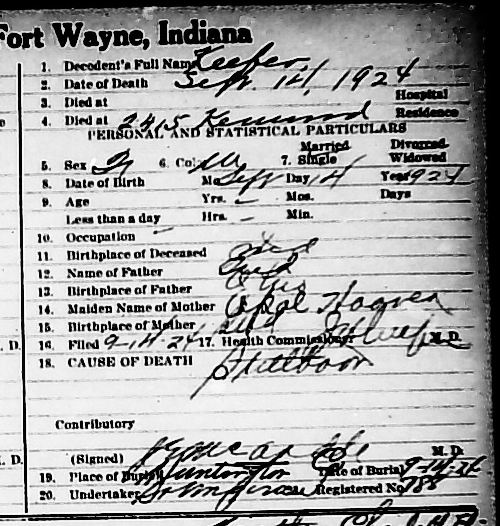 Fort Wayne, Indiana
1. Decedent's Full Name Keefer
2. Date of Death Sept. 14, 1924
3. Died at Hospital
4. Died at 2415 Kenwood Residence
PERSONAL AND STATISTICAL PARTICULARS
Married Divorced
5. Sex 6. Col. W 7. Single Widowed
8. Date of Birth Mo. Sept Day 14 Year 1924
9. Age Yrs. – Mos. Days
Less than a day Hrs. – Min.
10. Occupation –
11. Birthplace of Deceased Ind
12. Name of Father
13. Birthplace of Father Ohio
14. Maiden Name of Mother Opal Hoover
15. Birthplace of Mother
. D. 16. Filed 9-14-24 17. Health Commissioner M. D.
18. CAUSE OF DEATH Stillborn
Contributory
. D. (Signed) M. D.
19. Place of Burial Huntington Date of Burial 9-14-24
20. Undertaker Registered No. 784